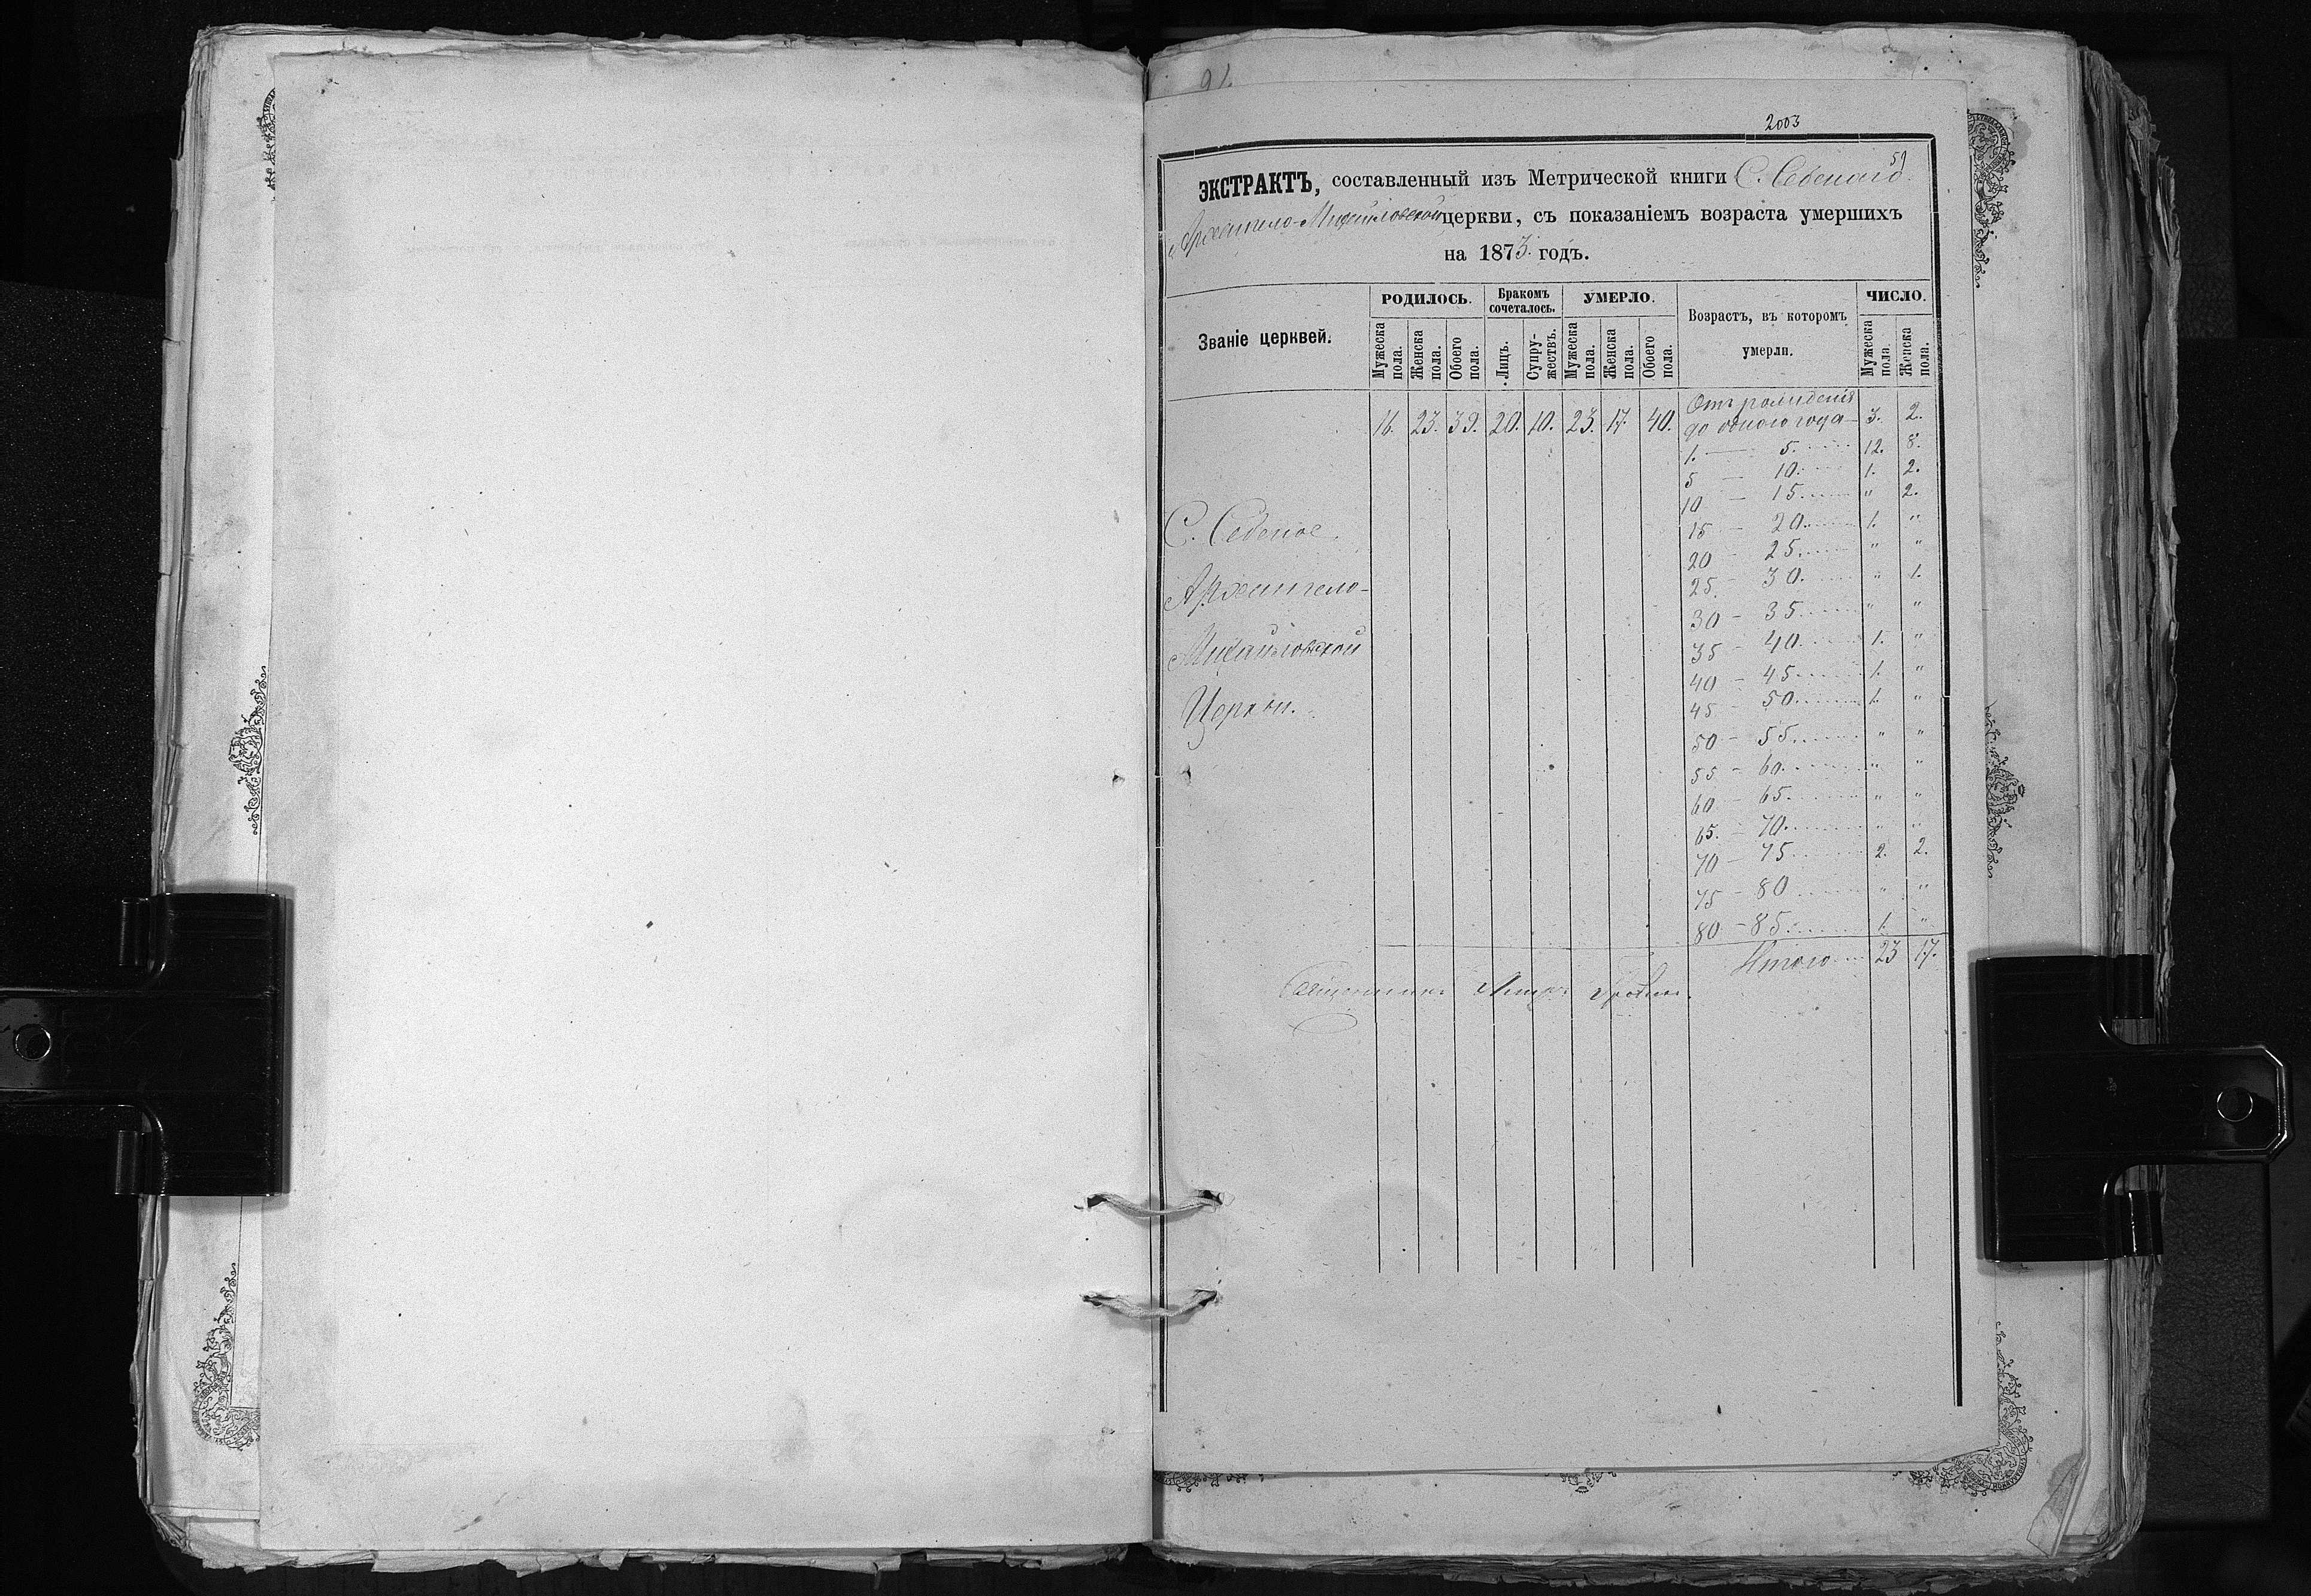 2003
59
ЭКСТРАКТЪ, составленный изъ Метрической книги С.
Архангело-Михайловской церкви, съ показаніемъ возраста умершихъ
на 1873. годъ.
Званіе церквей.
РОДИЛОСЬ.
Бракомъ сочеталось.
УМЕРЛО.
Возрастъ, въ которомъ умерли.
ЧИСЛО.
Мужеска пола.
Женска пола.
Обоего пола.
Лицъ.
Супружествъ.
Мужеска пола.
Женска пола.
Обоего пола.
Мужеска пола.
Женска пола.
Отъ рожденія
16. 23. 39. 20. 10. 23. 17. 40. до одного года 3. 2.
1. — 5. 12. 8.
5 — 10. 1. 2.
10 — 15. " 2.
С.
15 — 20. 1. "
20 — 25. " "
Архангело-
25. — 30. " 1.
30 — 35. " "
Михайловской
35 — 40. 1. "
40 — 45. 1. "
Церкви.
45 — 50. 1. "
50 — 55. " "
55 — 60. " "
60 — 65. " "
65. — 70. " "
70 — 75. 2. 2.
75 — 80 " "
80 — 85. 1. "
Итого 23 17.
Священникъ